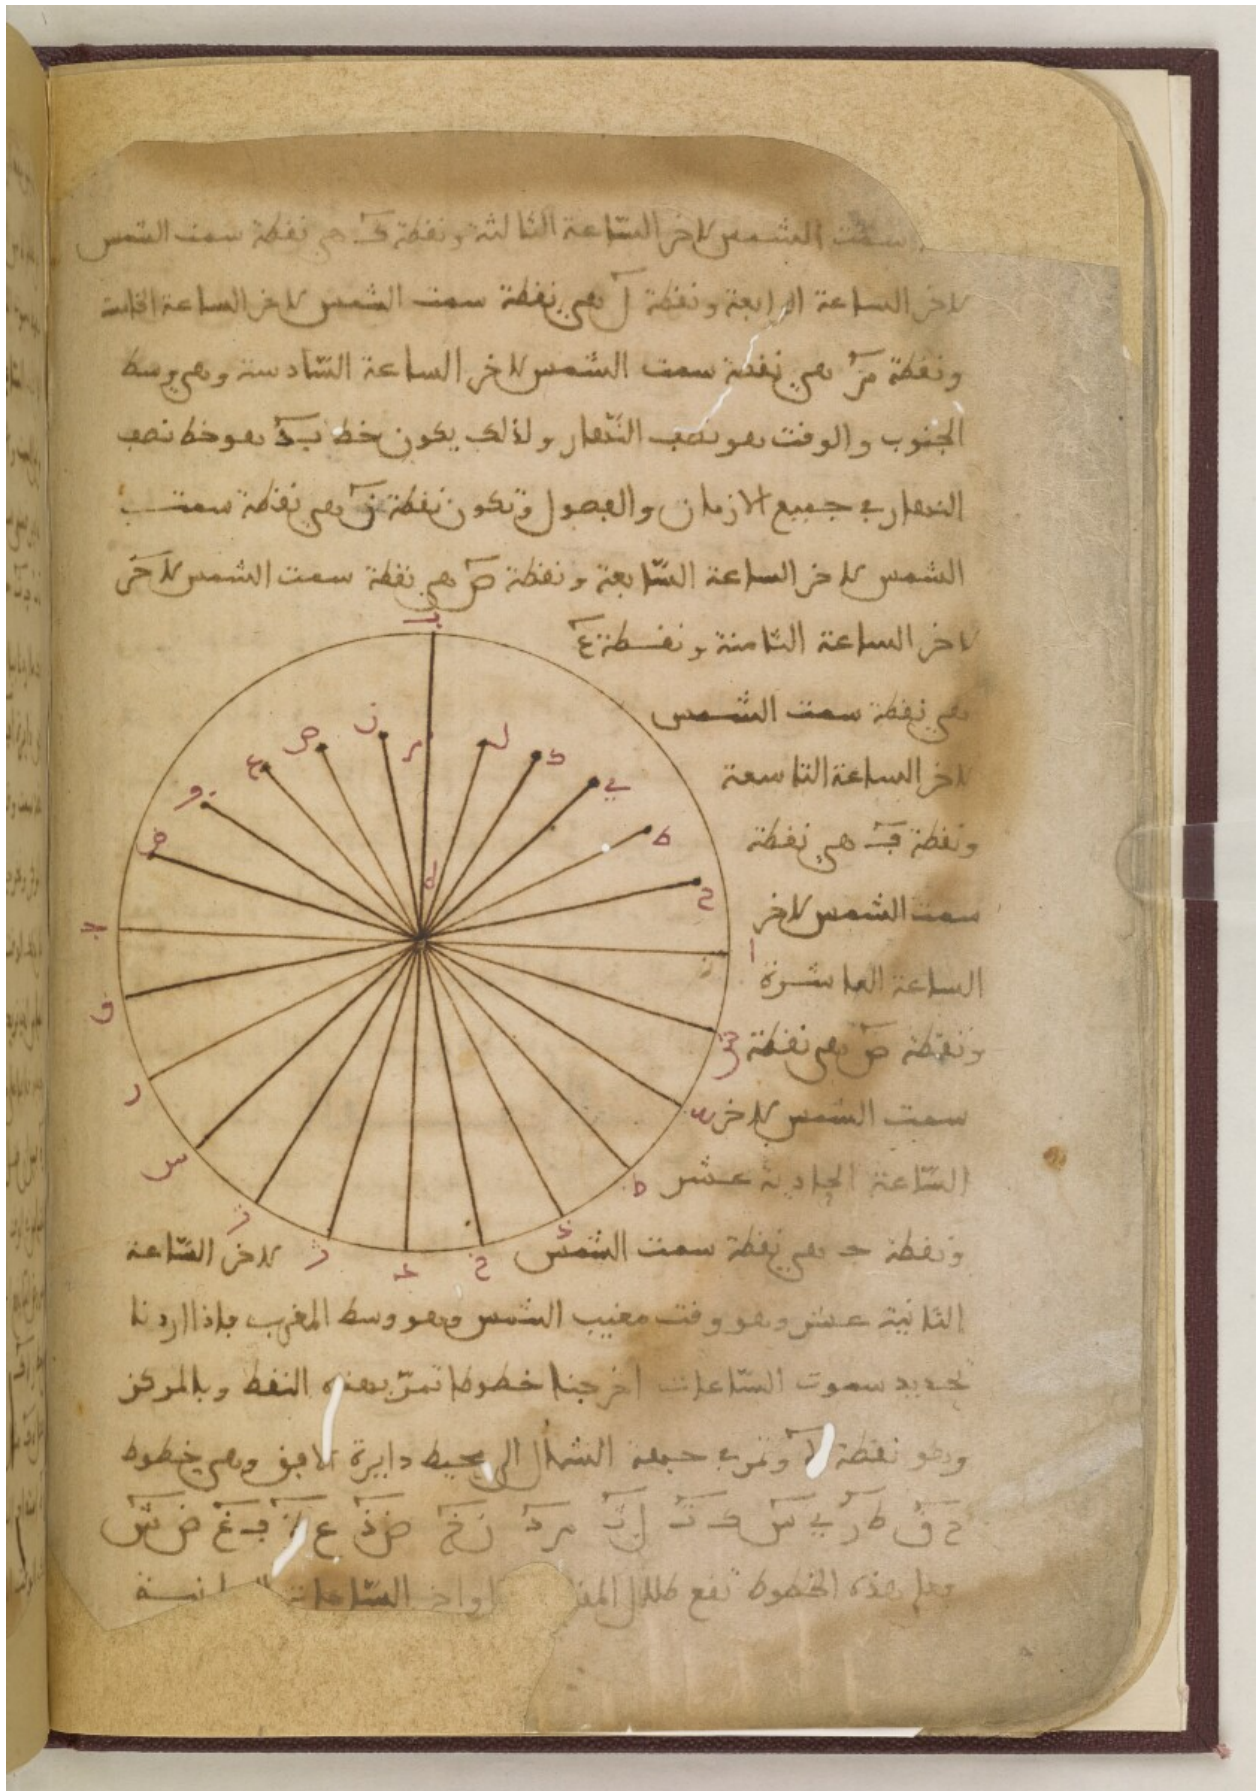 سمت الشمس لاخر الساعة الثالثة ونقطة ك هي نقطة سمت الشمس
لاخر الساعة الرابعة ونقطة ل هي نقطة سمت الشمس لاخر الساعة الخامسة
ونقطة م هي نقطة سمت الشمس لاخر الساعة السّادسة وهي وسط
الجنوب والوقت هو نصف النّهار ولذلك يكون خط ب د هو خط نصف
النهار في جميع الازمان والفصول وتكون نقطة ن هي نقطة سمت
الشمس لاخر الساعة السّابعة ونقطة ص هي نقطة سمت الشمس لاخر
لاخر الساعة الثامنة ونقطة ع
هي نقطة سمت الشمس
لاخر الساعة التاسعة
ونقطة ف هي نقطة
سمت الشمس لاخر
الساعة العاشرة
ونقطة ض هي نقطة
سمت الشمس لاخر
السّاعة الحادية عشر
ونقطة ج هي نقطة سمت الشمس لاخر السّاعة
الثانية عشر وهو وقت مغيب الشمس وهو وسط المغرب فاذا اردنا
تحديد سموت السّاعات اخرجنا خطوطا تمرّ بهذه النقط وبالمركز
وهو نقطة ه وتمر في جهة الشمال الى محيط دايرة الافق وهي خطوط
ح ق ط ر ي س ك ت ل ث م د ن خ ص ذ ع ف غ ض ش
وعلى هذه الخطوط تقع ظلال السّاعات
ب
ن
ص
ع
ف
ض
م
ل
ك
ي
ط
ح
ه
ا
ج
ق
ر
س
ت
ث
د
خ
ش